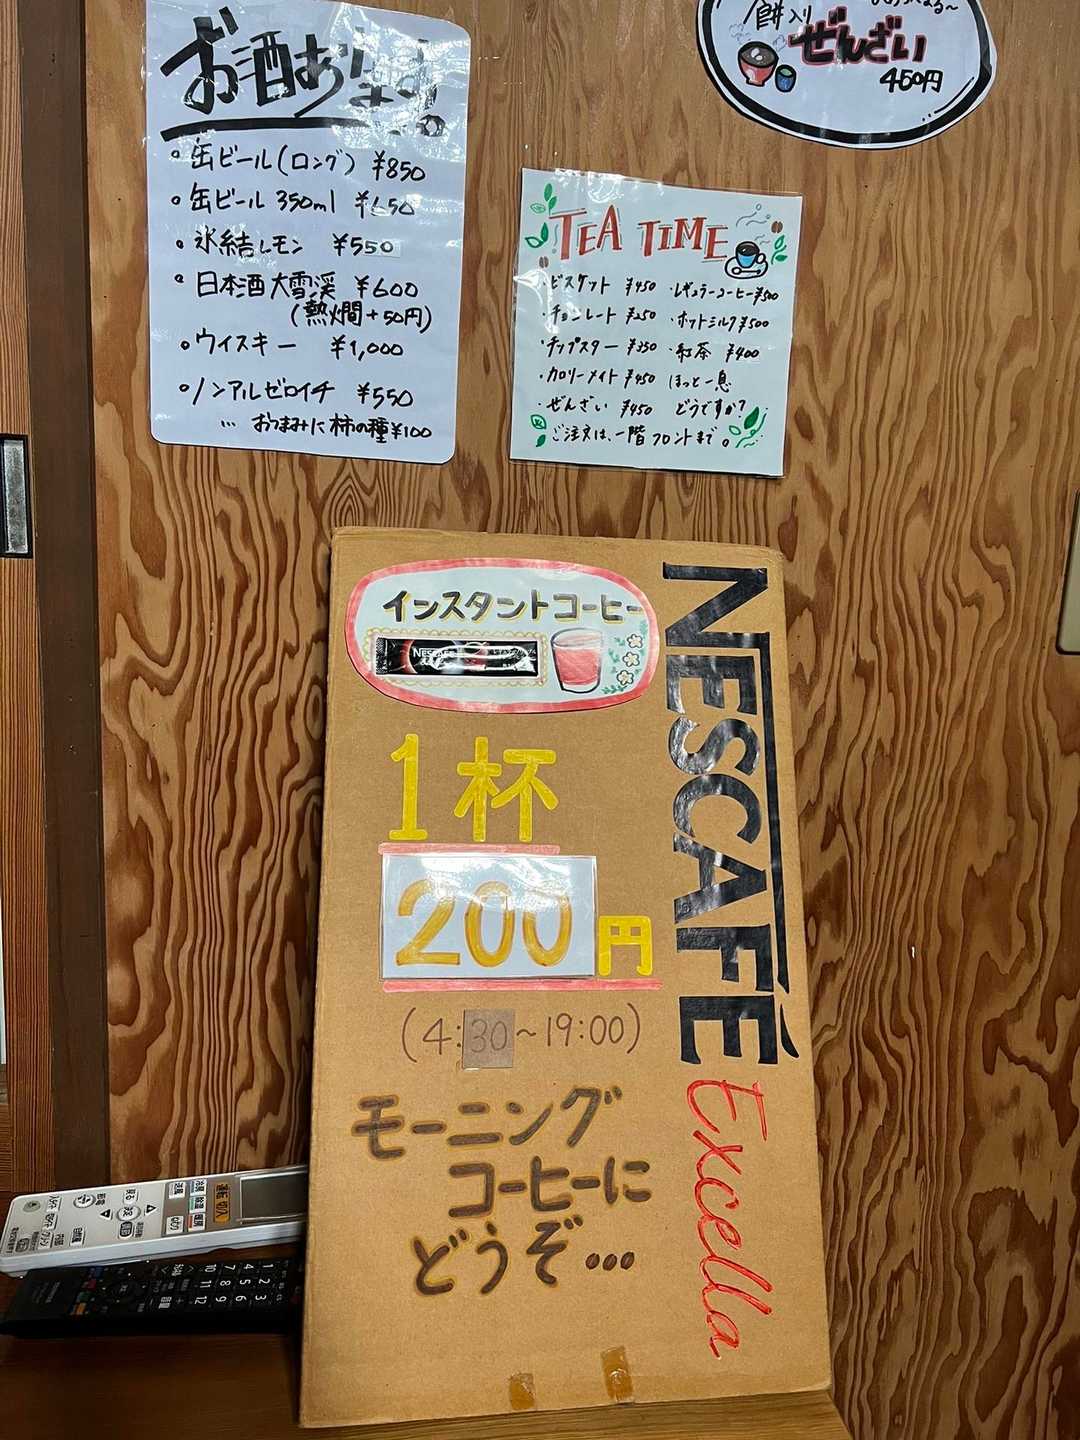 お酒あります。
・缶ビール(ロング) ¥850
・缶ビール 350ml ¥650
・氷結レモン ¥550
・日本酒 大雪渓 ¥600
(熱燗+50円)
・ウイスキー ¥1,000
・ノンアルゼロイチ ¥550
… おつまみに柿の種¥100
餅入り
ぜんざい
450円
TEA TIME
・ビスケット ¥450
・チョコレート ¥250
・チップスター ¥350
・カロリーメイト ¥450
・ぜんざい ¥450
・レギュラーコーヒー ¥500
・ホットミルク ¥500
・紅茶 ¥400
ほっと一息
どうですか?
ご注文は、一階フロントまで。
インスタントコーヒー
NESCAFÉ
1杯
200円
(4:30~19:00)
モーニング
コーヒーに
どうぞ…
NESCAFÉ
Excella
運転 切/入
冷房
除湿
暖房
送風
1 2 3
4 5 6
7 8 9
10 11 12